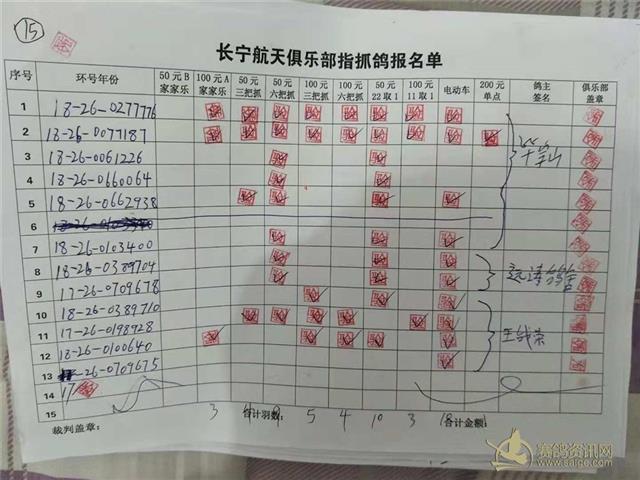 15
长宁航天俱乐部指抓鸽报名单
序号 环号年份 50元B家家乐 100元A家家乐 50元三把抓 50元六把抓 100元三把抓 100元六把抓 50元22取1 100元11取1 电动车 200元单点 鸽主签名 俱乐部盖章
1 18-26-0277776
2 18-26-0077187
3 18-26-0061226
4 18-26-0660064
5 18-26-0662938
6
7 18-26-0103400
8 18-26-0389704
9 17-26-0709678
10 18-26-0389710
11 17-26-0198928
12 18-26-0100640
13 -26-0709675
14 17
15
3 4 合计羽数: 5 4 10 3 合计金额:
裁判盖章:
赛鸽资讯网
www.saige.com